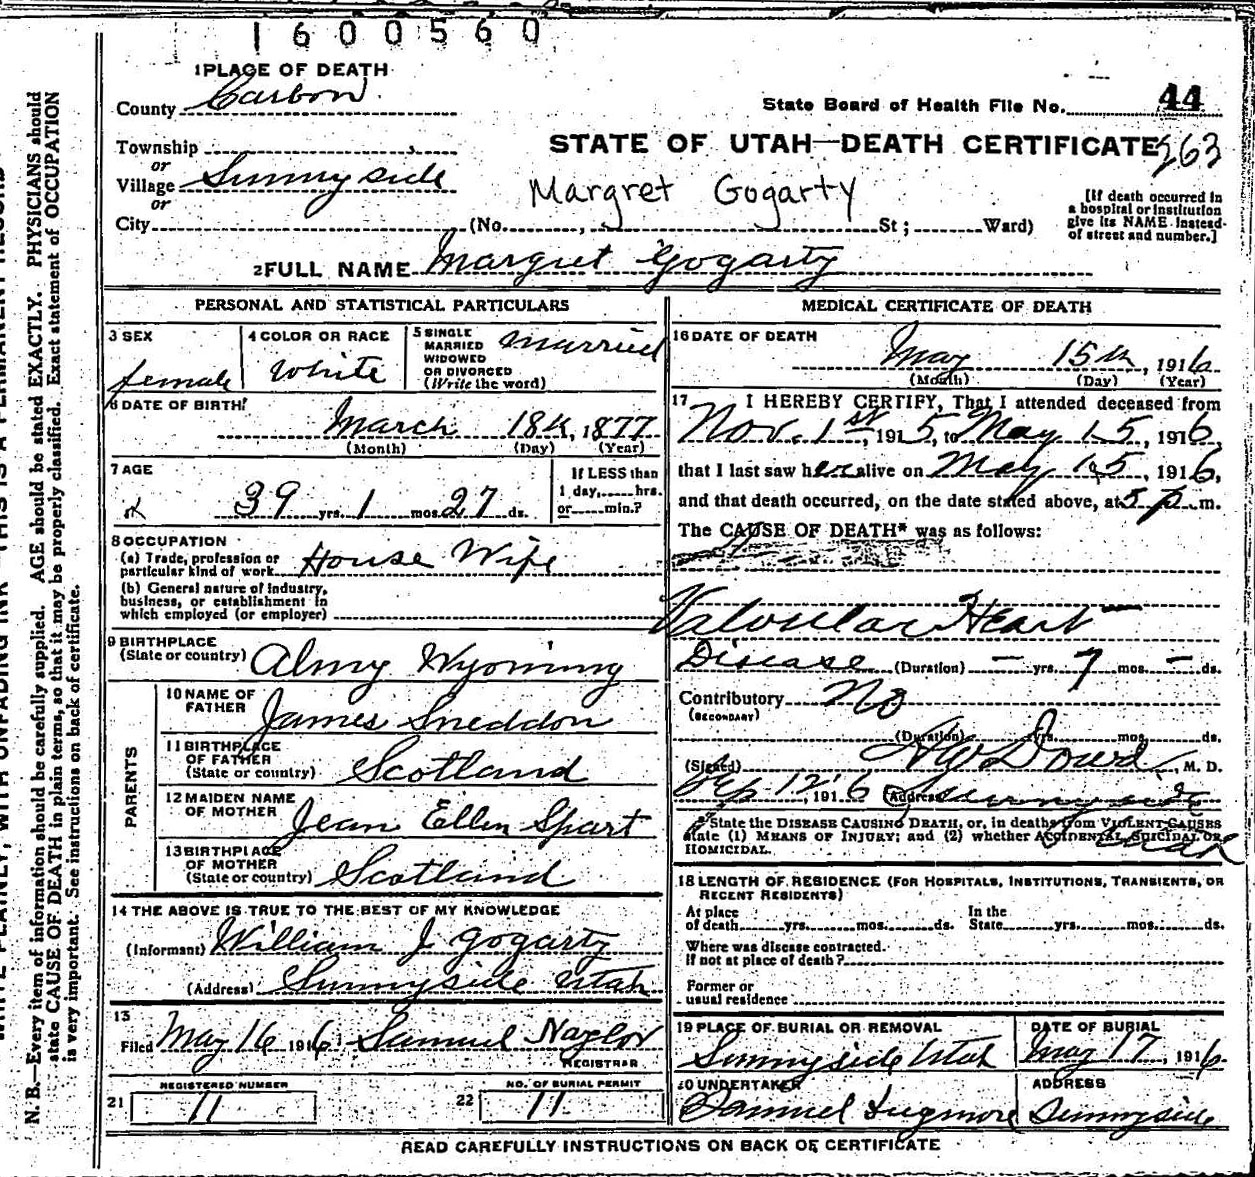 1600560
1 PLACE OF DEATH
County Carbon
State Board of Health File No. 44
Township
STATE OF UTAH—DEATH CERTIFICATE 263
or
Village Sunnyside
Margret Gogarty
or
City (No. , St ; Ward)
[If death occurred in
a hospital or institution
give its NAME instead
of street and number.]
2 FULL NAME Margret Gogarty
PERSONAL AND STATISTICAL PARTICULARS
3 SEX
female
4 COLOR OR RACE
White
5 SINGLE
MARRIED
WIDOWED
OR DIVORCED
(Write the word)
married
6 DATE OF BIRTH
March 18th, 1877
(Month) (Day) (Year)
7 AGE
39 yrs. 1 mos. 27 ds.
If LESS than
1 day, hrs.
or min.?
8 OCCUPATION
(a) Trade, profession or
particular kind of work House Wife
(b) General nature of industry,
business, or establishment in
which employed (or employer)
9 BIRTHPLACE
(State or country) Almy Wyoming
PARENTS
10 NAME OF
FATHER
James Sneddon
11 BIRTHPLACE
OF FATHER
(State or country) Scotland
12 MAIDEN NAME
OF MOTHER
Jean Ellen Spart
13 BIRTHPLACE
OF MOTHER
(State or country) Scotland
14 THE ABOVE IS TRUE TO THE BEST OF MY KNOWLEDGE
(Informant) William J Gogarty
(Address) Sunnyside Utah
15
Filed May 16 1916 Samuel Naylor
REGISTRAR
REGISTERED NUMBER
21 11
NO. OF BURIAL PERMIT
22 11
MEDICAL CERTIFICATE OF DEATH
16 DATE OF DEATH
May 15th, 1916
(Month) (Day) (Year)
17 I HEREBY CERTIFY, That I attended deceased from
Nov. 1st, 1915, to May 15, 1916,
that I last saw her alive on May 15, 1916,
and that death occurred, on the date stated above, at 5 p. m.
The CAUSE OF DEATH* was as follows:
Valvular Heart
Disease (Duration) — yrs. 7 mos. — ds.
Contributory No
(SECONDARY)
(Duration) yrs. mos. ds.
(Signed) Dowd, M. D.
12, 1916 (Address) Sunnyside
Utah
*State the DISEASE CAUSING DEATH, or, in deaths from VIOLENT CAUSES
state (1) MEANS OF INJURY; and (2) whether ACCIDENTAL, SUICIDAL OR
HOMICIDAL.
18 LENGTH OF RESIDENCE (FOR HOSPITALS, INSTITUTIONS, TRANSIENTS, OR
RECENT RESIDENTS)
At place
of death yrs. mos. ds.
In the
State yrs. mos. ds.
Where was disease contracted.
If not at place of death?
Former or
usual residence
19 PLACE OF BURIAL OR REMOVAL
Sunnyside Utah
DATE OF BURIAL
May 17, 1916
20 UNDERTAKER
Samuel
ADDRESS
Sunnyside
READ CAREFULLY INSTRUCTIONS ON BACK OF CERTIFICATE
N. B.—Every item of information should be carefully supplied. AGE should be stated EXACTLY. PHYSICIANS should
state CAUSE OF DEATH in plain terms, so that it may be properly classified. Exact statement of OCCUPATION
is very important. See instructions on back of certificate.